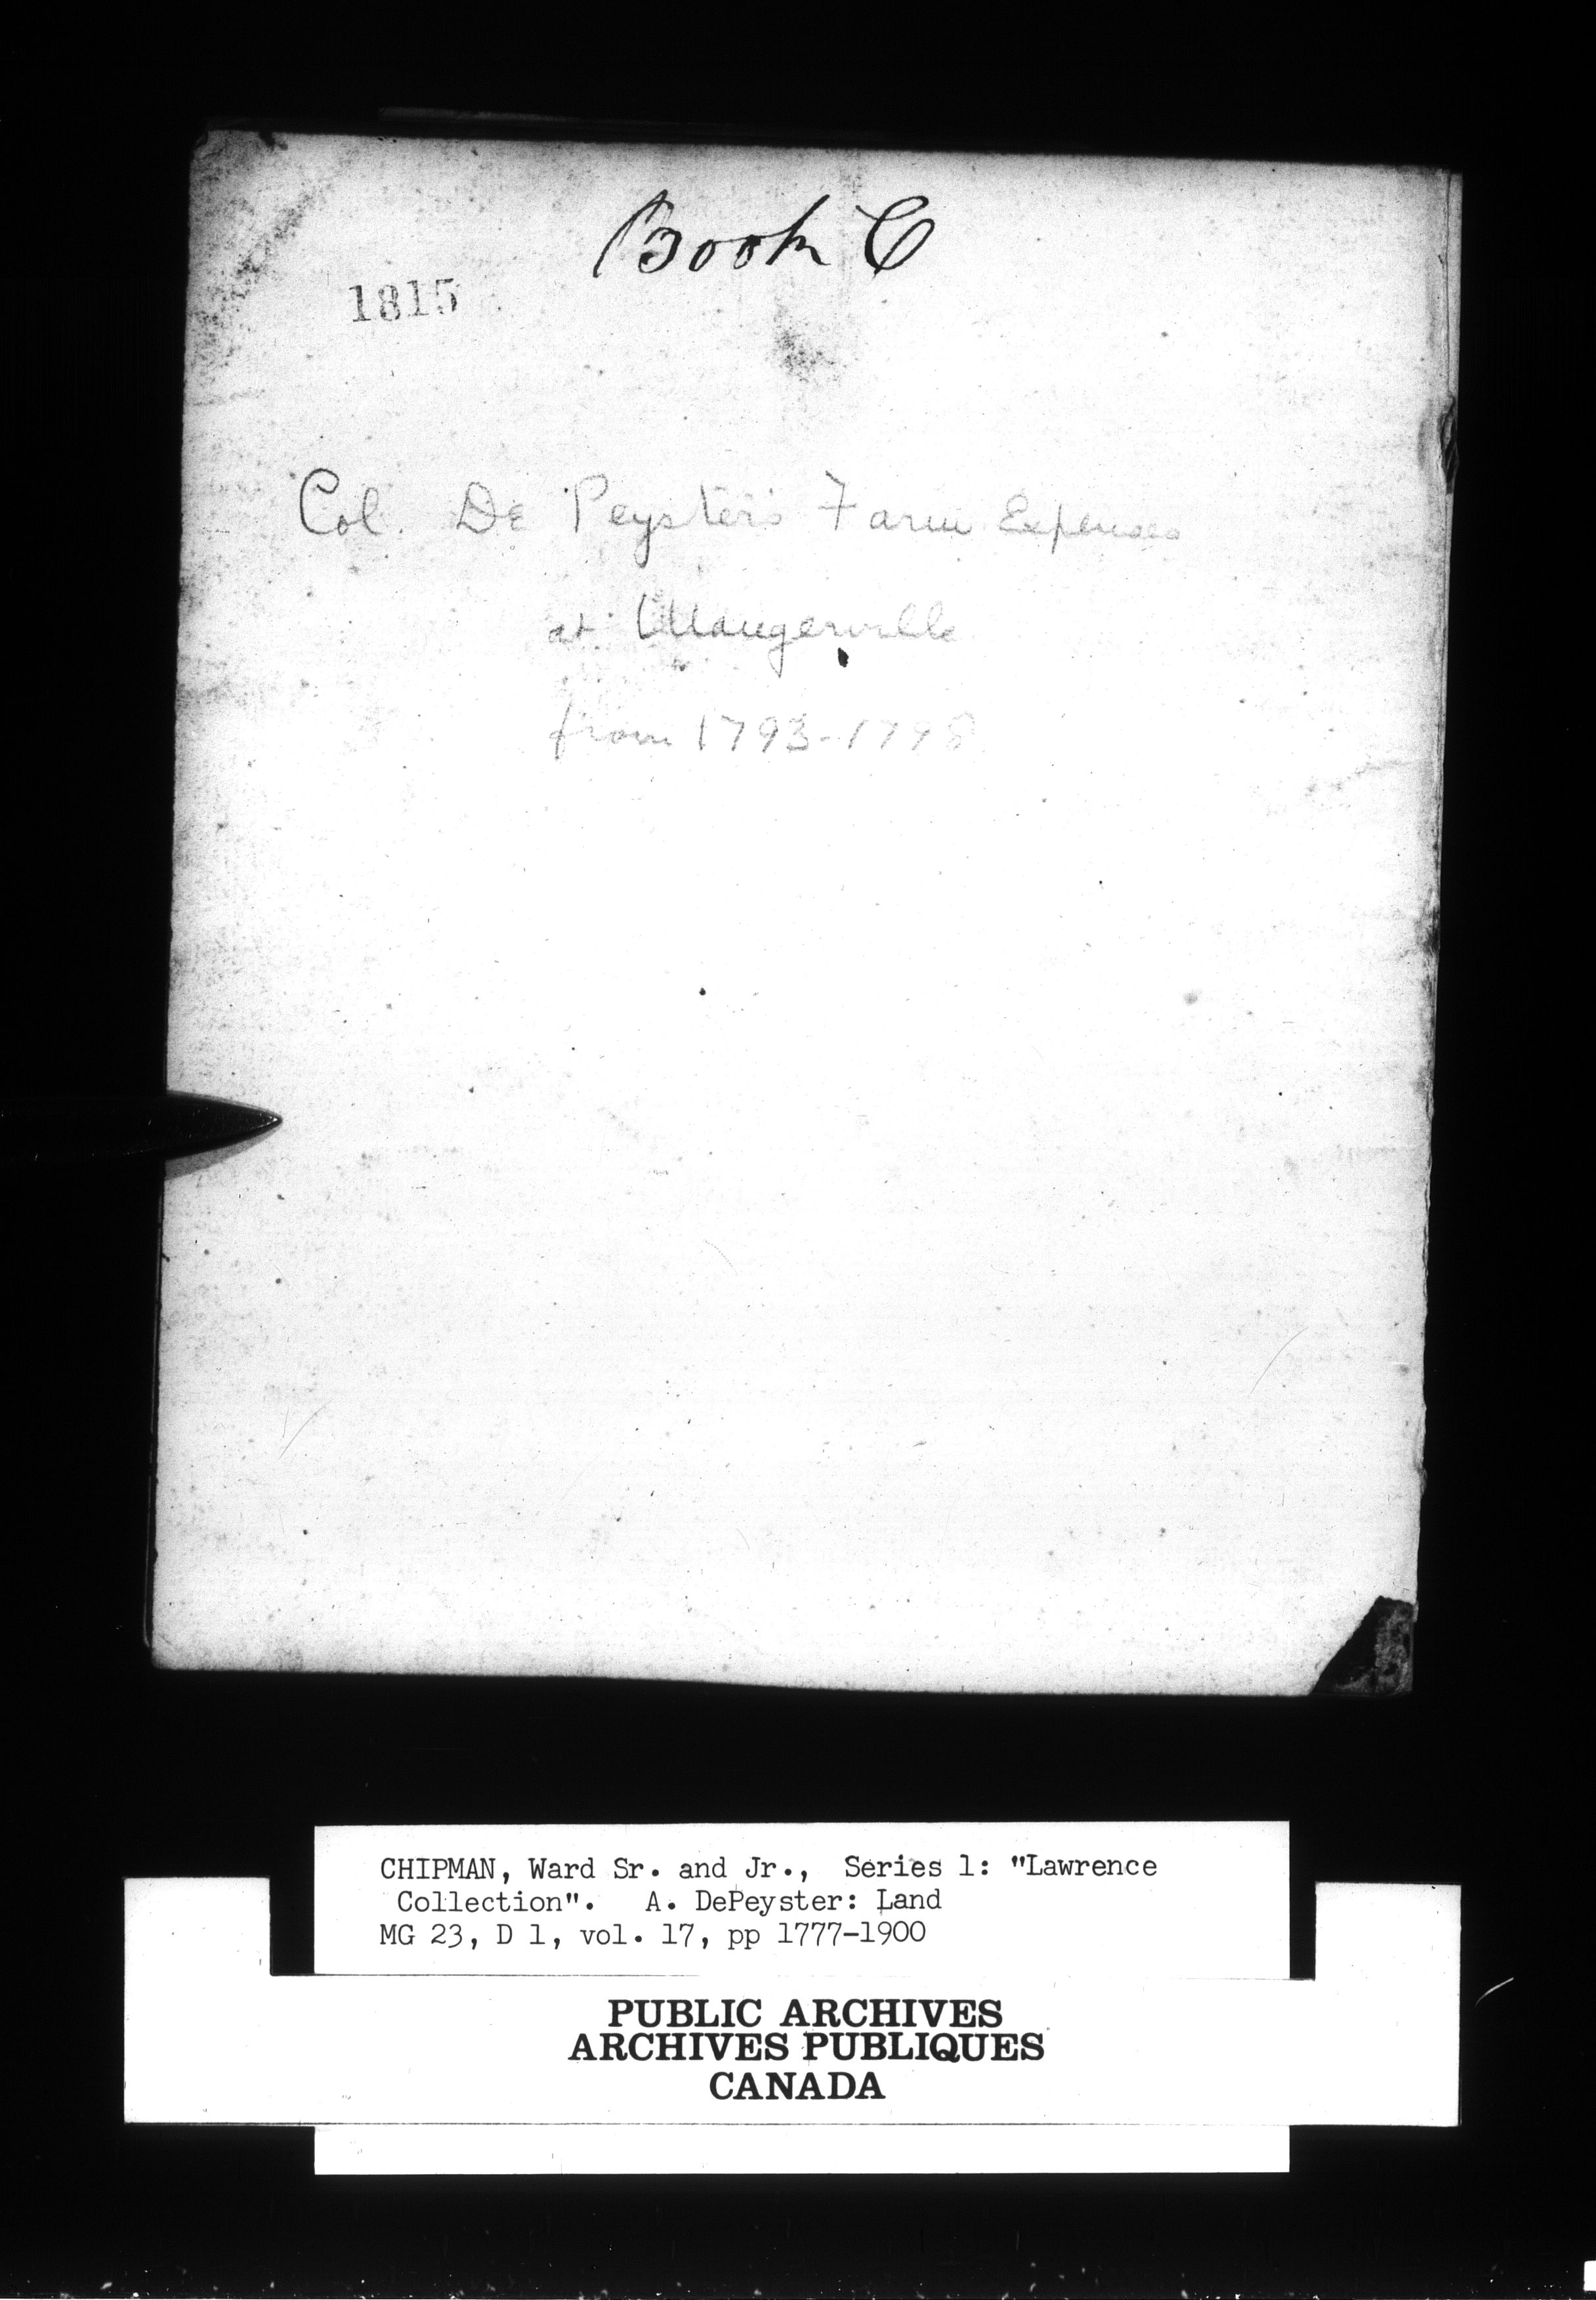 Book C
1815
Col. De Peyster's Farm Expenses
at Maugerville
from 1793-1798
CHIPMAN, Ward Sr. and Jr., Series 1: "Lawrence
Collection". A. DePeyster: Land
MG 23, D 1, vol. 17, pp 1777-1900
PUBLIC ARCHIVES
ARCHIVES PUBLIQUES
CANADA